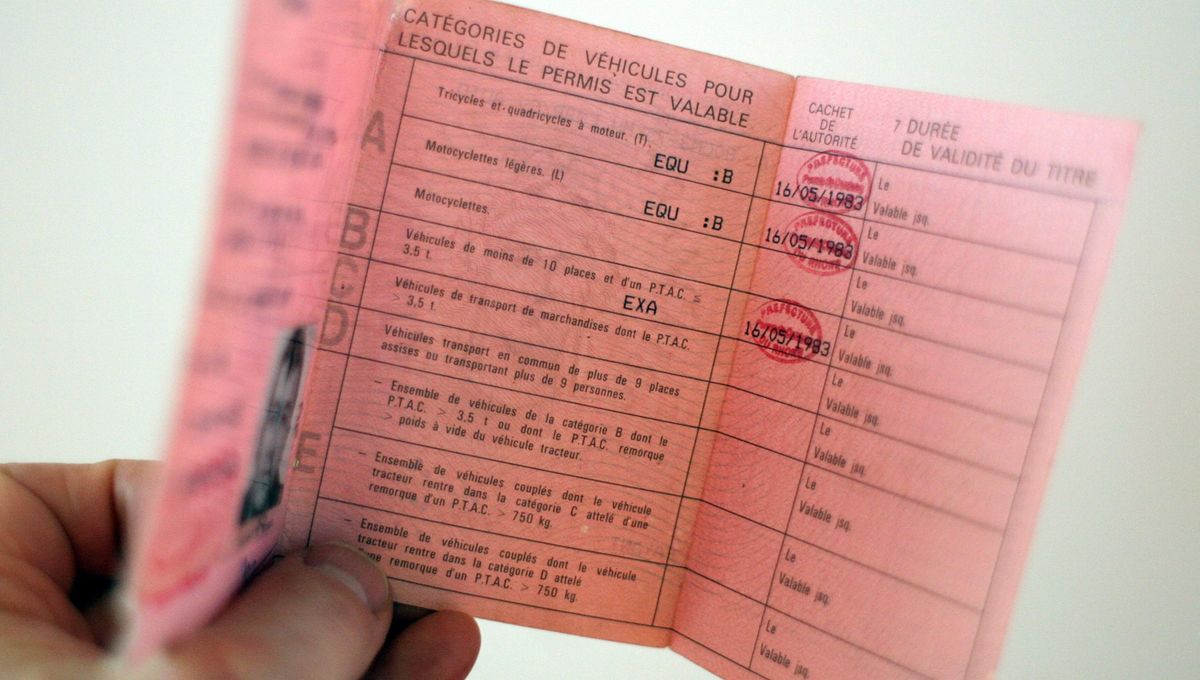 CATÉGORIES DE VÉHICULES POUR
LESQUELS LE PERMIS EST VALABLE
CACHET
DE
L'AUTORITÉ
7 DURÉE
DE VALIDITÉ DU TITRE
A
Tricycles et quadricycles à moteur. (T).
EQU :B
PREFECTURE
16/05/1983
Le
Valable jsq.
Motocyclettes légères. (L)
EQU :B
PREFECTURE
16/05/1983
DU RHONE
Le
Valable jsq.
Motocyclettes.
Le
Valable jsq.
B
Véhicules de moins de 10 places et d'un P.T.A.C. ≤
3,5 t.
EXA
PREFECTURE
16/05/1983
DU RHONE
Le
Valable jsq.
C
Véhicules de transport de marchandises dont le P.T.A.C.
> 3,5 t.
Le
Valable jsq.
D
Véhicules transport en commun de plus de 9 places
assises ou transportant plus de 9 personnes.
Le
Valable jsq.
E
– Ensemble de véhicules de la catégorie B dont le
P.T.A.C. > 3.5 t ou dont le P.T.A.C. remorque
> poids à vide du véhicule tracteur.
Le
Valable jsq.
– Ensemble de véhicules couplés dont le véhicule
tracteur rentre dans la catégorie C attelé d'une
remorque d'un P.T.A.C. > 750 kg.
Le
Valable jsq.
– Ensemble de véhicules couplés dont le véhicule
tracteur rentre dans la catégorie D attelé
remorque d'un P.T.A.C. > 750 kg.
Le
Valable jsq.